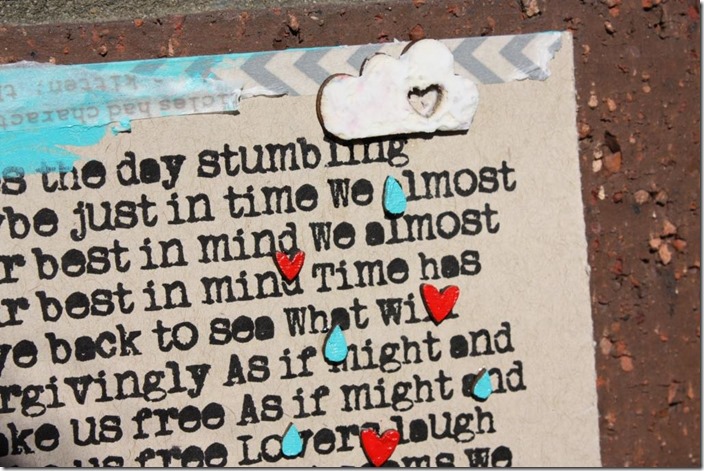 kitten;
had
the day stumbling
just in time We almost
best in mind We almost
best in mind Time has
back to sea What will
rgivingly As if might and
ke us free As if might and
us free Lovers laugh
We